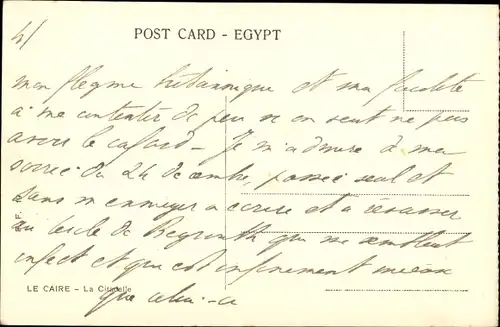 4/
POST CARD - EGYPT
mon flegme britannique et ma faculté
à me contenter de peu se on veut ne pas
avoir le cafard - Je m'admire à ma
soirée du 24 décembre, passée seul et
sans m'ennuyer à écrire et à
au cercle de Beyrouth que me semblait
infect et que est infiniment mieux
que celui-ci
LE CAIRE - La Citadelle